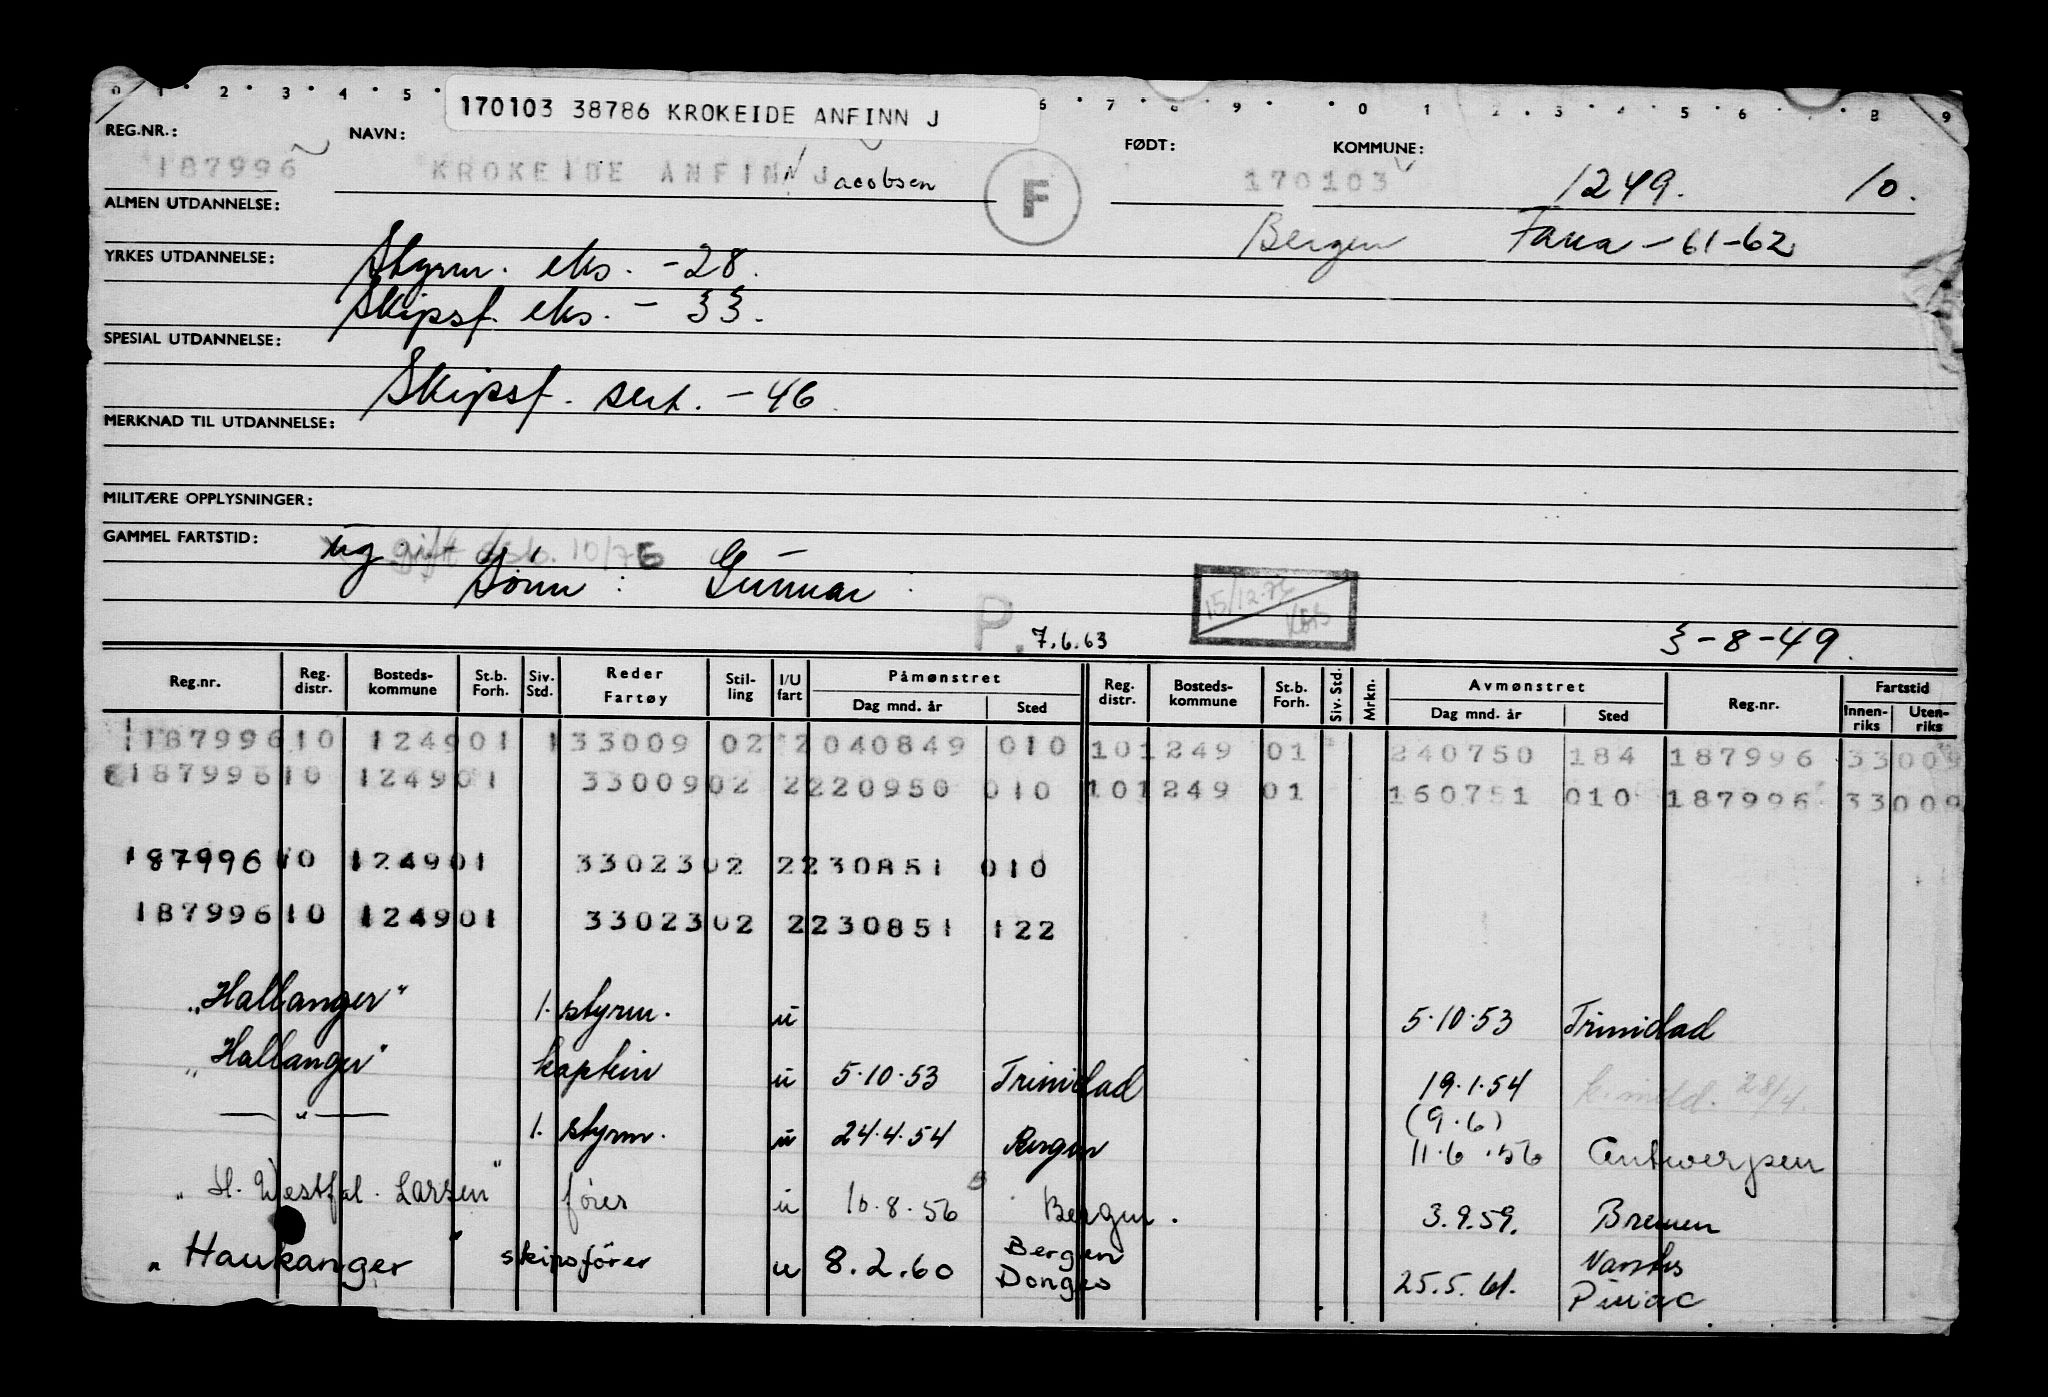 0 1 2 3 4 5 6 7 8 9 0 1 2 3 4 5 6 7 8 9
170103 38786 KROKEIDE ANFINN J
REG.NR.: NAVN: FØDT: KOMMUNE:
187996 KROKEIDE ANFINN Jacobsen F 170103 1249. 10.
ALMEN UTDANNELSE:
Bergen Fana - 61-62
YRKES UTDANNELSE: Styrm. eks. -28.
Skipsf. eks. - 33.
SPESIAL UTDANNELSE:
Skipsf. sert. - 46.
MERKNAD TIL UTDANNELSE:
MILITÆRE OPPLYSNINGER:
GAMMEL FARTSTID: ug gift 10/76
Sönn: Gunnar
15/12-72
P. 7.6.63 3-8-49.
Reg.nr. Reg. distr. Bosteds-kommune St.b. Forh. Siv. Std. Reder Fartøy Stil-ling I/U fart Påmønstret Dag mnd. år Sted Reg. distr. Bosteds-kommune St.b. Forh. Siv. Std. Mrkn. Avmønstret Dag mnd. år Sted Reg.nr. Fartstid Innen-riks Uten-riks
187996 10 1249 01 1 33009 02 2 040849 010 10 1249 01 240750 184 187996 33009
187996 10 1249 01 33009 02 2 220950 010 10 1249 01 160751 010 187996 33009
187996 10 1249 01 33023 02 2 230851 010
187996 10 1249 01 33023 02 2 230851 122
"Hallanger" 1. styrm. u 5.10.53 Trinidad
"Hallanger" kaptein u 5.10.53 Trinidad 19.1.54 28/4.
— " — 1. styrm. u 24.4.54 Bergen (9.6) 11.6.56 Antwerpen
"H. Westfal. Larsen" förer u 10.8.56 Bergen. 3.9.59. Bremen
"Haukanger" skipsförer u 8.2.60 Bergen Donges 25.5.61.